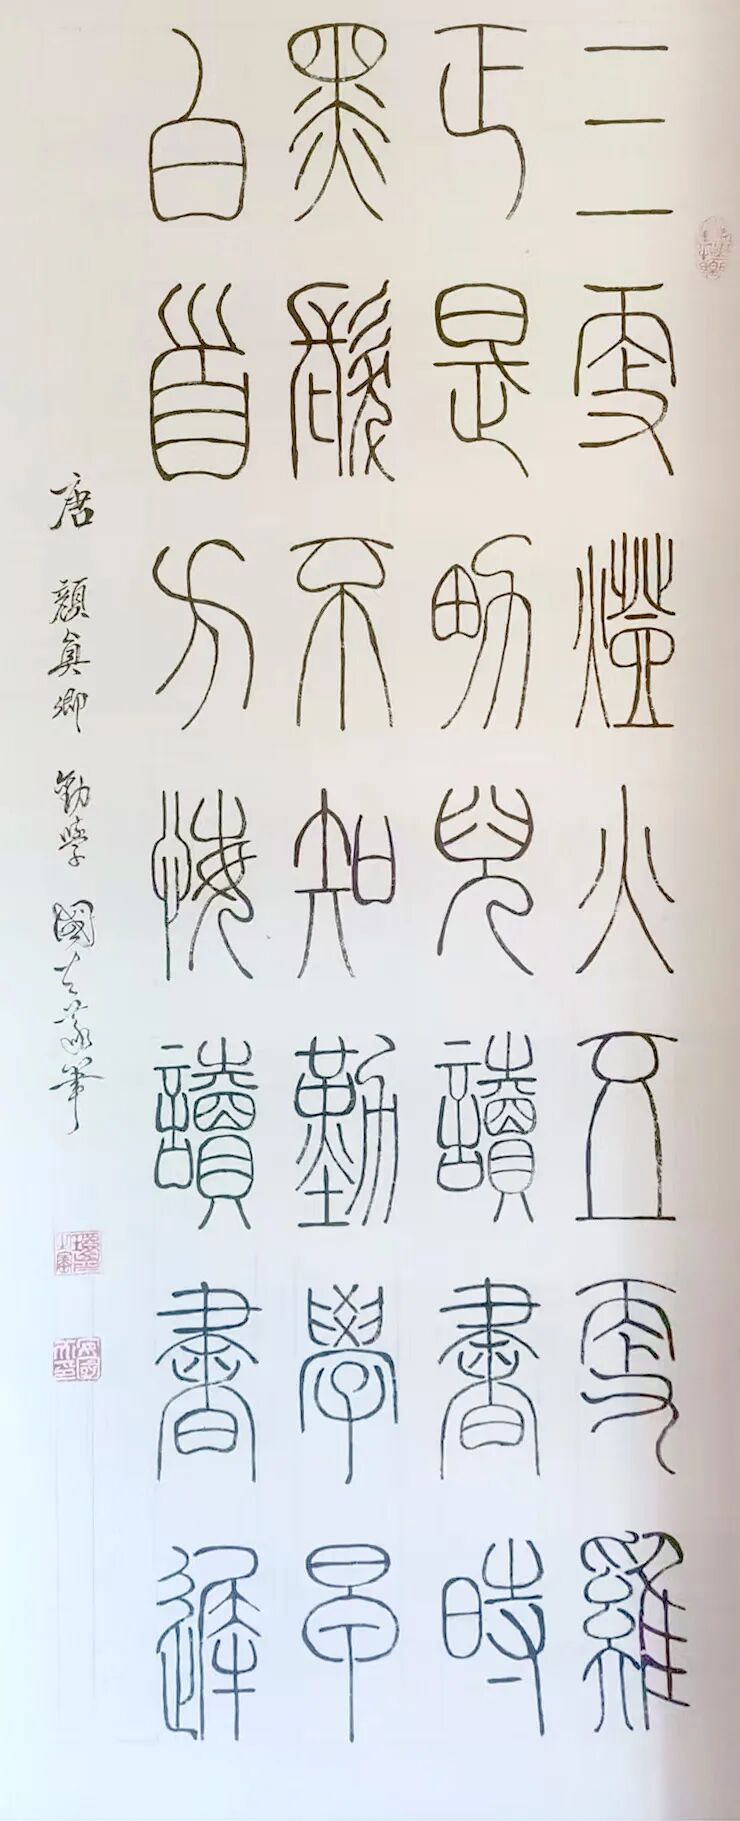 三更燈火五更雞
正是男兒讀書時
黑髮不知勤學早
白首方悔讀書遲
唐 顏真卿 勸學 國